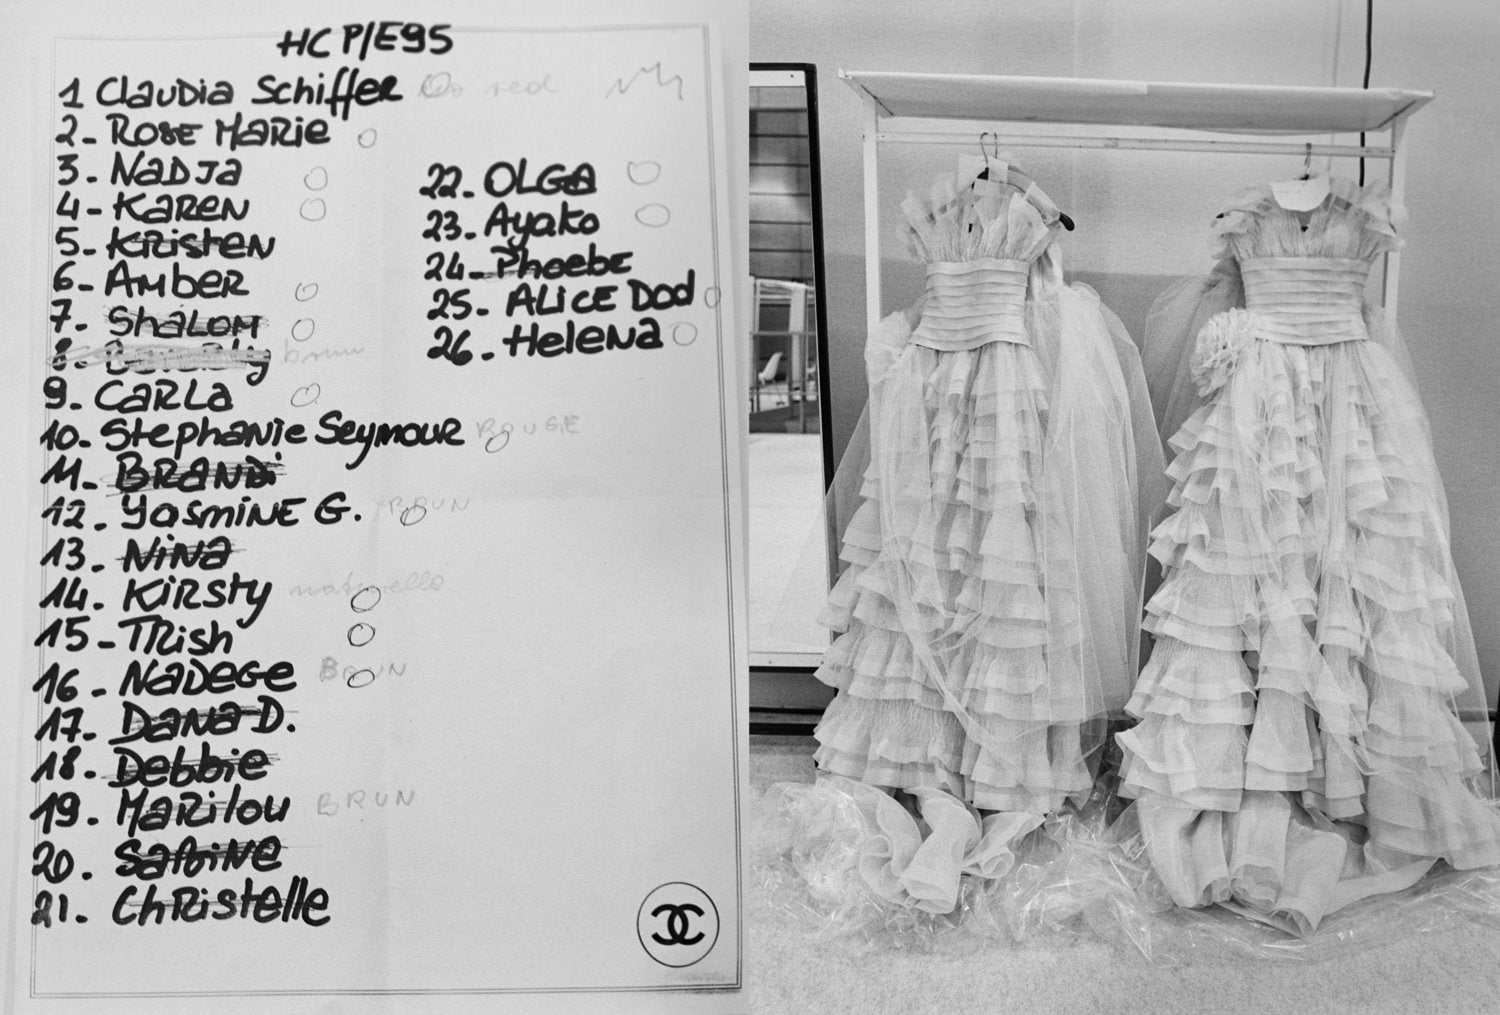 HC P/E95
1 Claudia Schiffer red
2- Rose Marie
3- Nadja
4- Karen
5- Kristen
6- Amber
7- Shalom
8- brun
9. Carla
10- Stephanie Seymour ROUGE
11- Brandi
12. Yasmine G. BRUN
13. Nina
14. Kirsty
15- Trish
16- Nadege BRUN
17. Dana D.
18- Debbie
19. Marilou BRUN
20. Sabine
21- Christelle
22- Olga
23- Ayako
24- Phoebe
25- Alice Dod
26- Helena